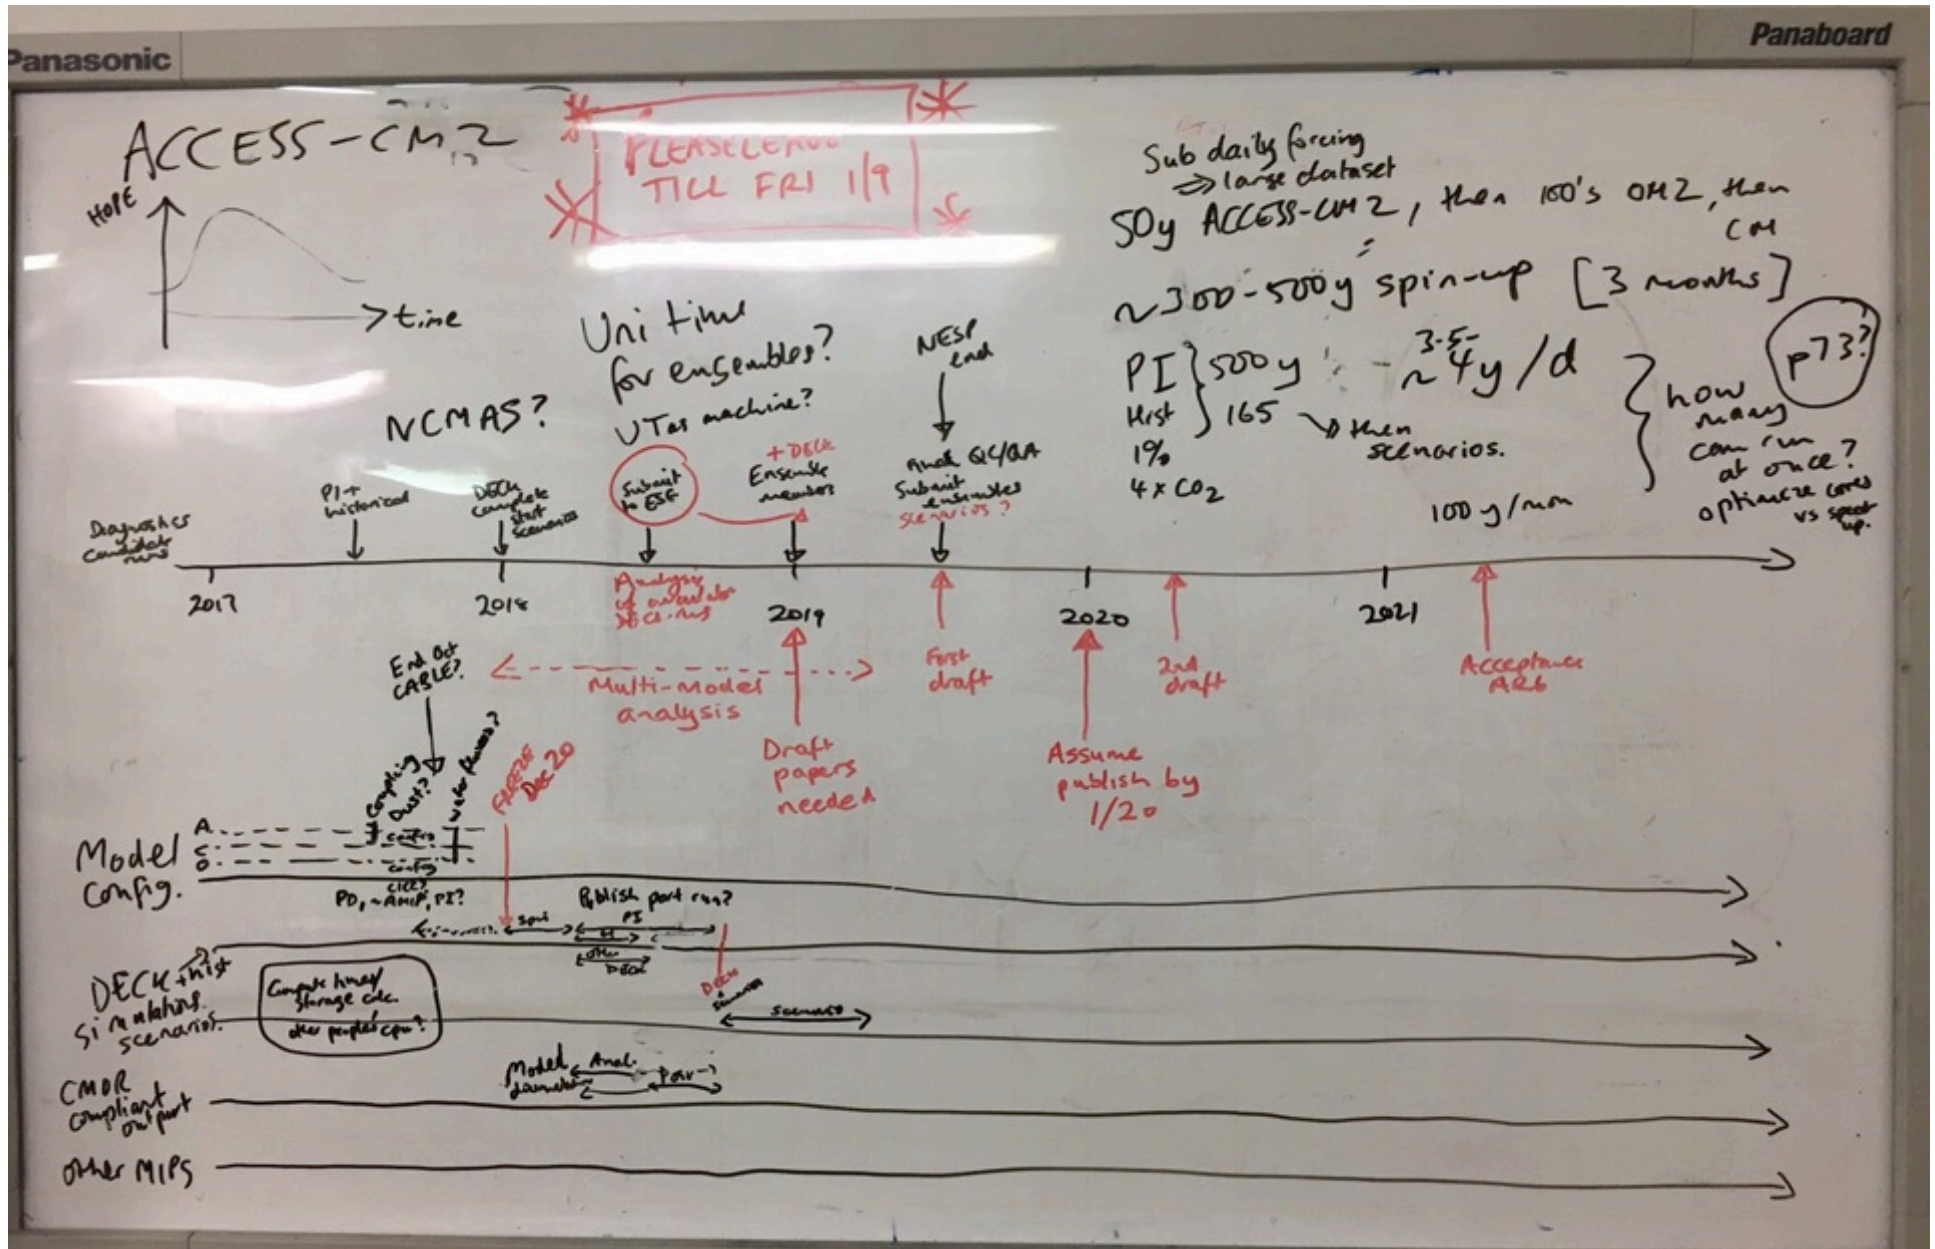 Panasonic
Panaboard
ACCESS-CM2
PLEASE LEAVE
TILL FRI 1/9
HOPE
time
Sub daily forcing
⇒ large dataset
50y ACCESS-CM2, then 100's OM2, then
CM
~300-500y spin-up [3 months]
PI } 500y
Hist } 165
1%
4 x CO2
then
scenarios.
3-5-
~4y/d
100 y/mon
p73?
how
many
can run
at once?
optimize cores
vs speed
up.
Uni time
for ensembles?
UTas machine?
NCMAS?
NESP
end
Diagnostics
Candidate
runs
PI +
historical
DECK
complete
start
scenarios
Submit
to ESG
+ DECK
Ensemble
members
QC/QA
Submit
ensembles
scenarios?
2017
2018
2019
2020
2021
Analysis
of available
DECK runs
End Oct
CABLE?
Multi-model
analysis
Draft
papers
needed
First
draft
Assume
publish by
1/20
2nd
draft
Acceptance
AR6
Coupling
Dust?
water fluxes?
FREEZE
Dec 20
Model
Config.
A
C
O
config
config
PD, ~AMIP, PI?
Publish part run?
PI
other
DECK
DECK + hist
Simulations
scenarios.
Compute time/
storage calc.
other people's cpu?
DECK
scenarios
scenario
Model
Anal.
CMOR
Compliant
output
other MIPS